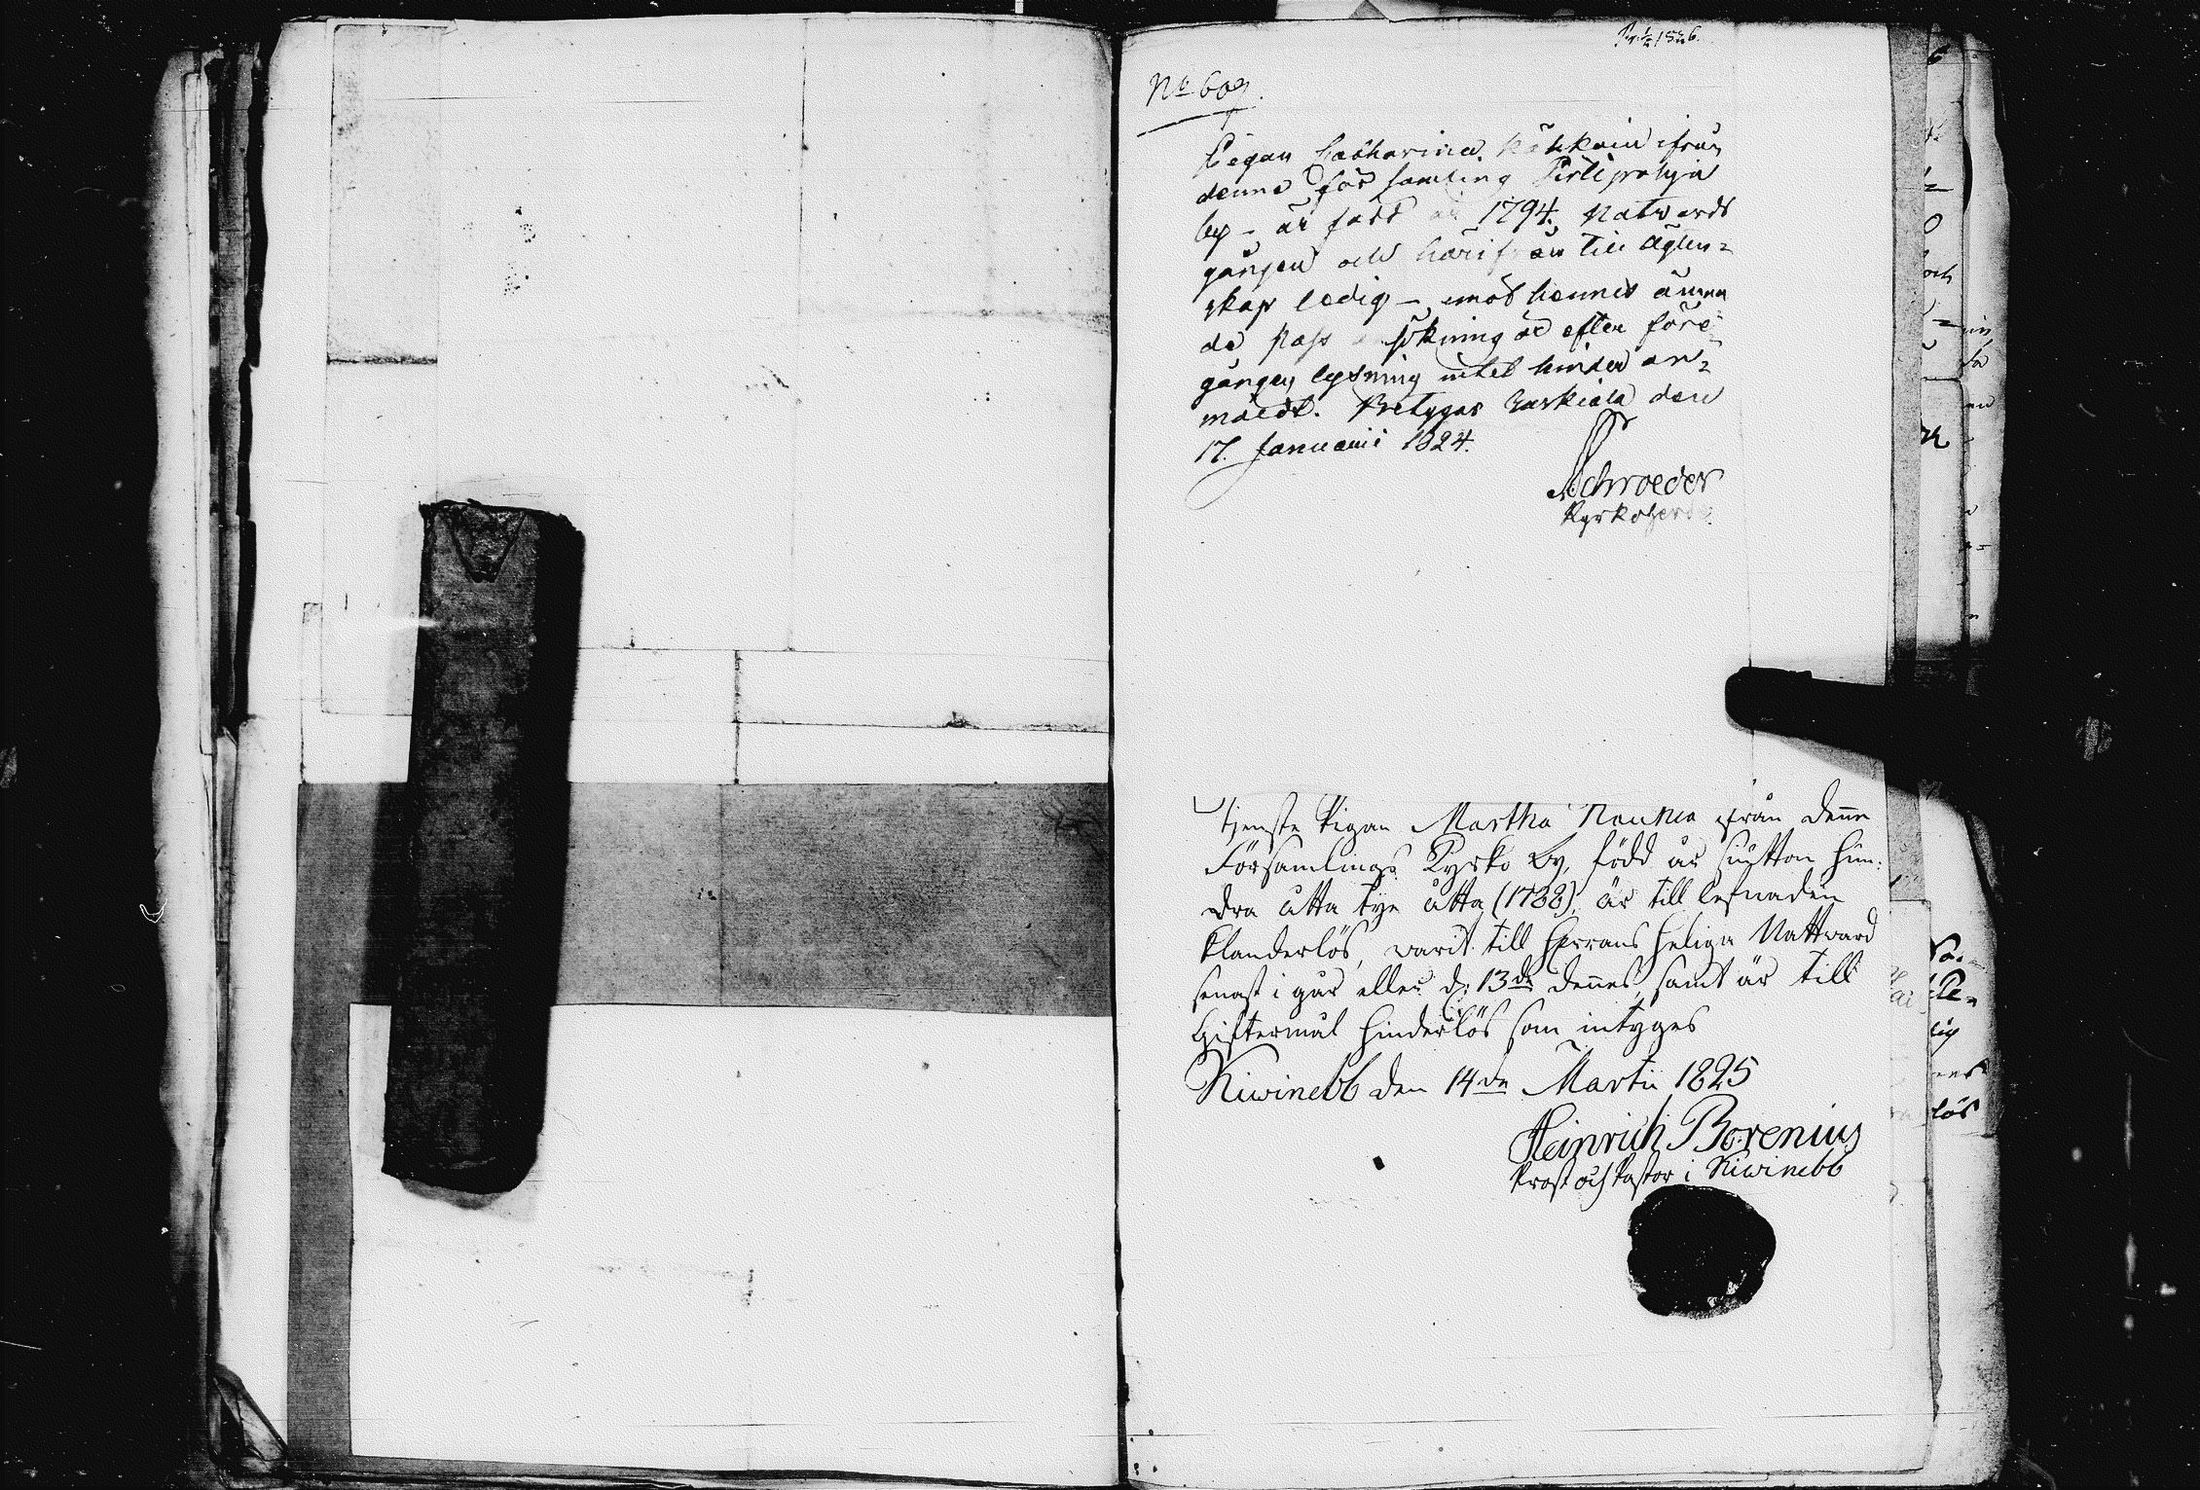 No 609.
Pigan Catharina Kähkoin ifrån
denne församling Pirtipohja
by - är född år 1794. Natwardt
gången och härifrån till ägten=
skap ledig - emot hennes ämna
de pass sökning är efter före
gången lysning intet hinder an=
mäldt. Betygar Ruskiala den
17. Januarii 1824.
Schroeder
Kyrkoherde.
Tjenste Pigan Martha från denne
Församlings Kyrko by, född år sjutton hun:
dra åtta tye åtta (1788), är till lefnaden
klanderlös, warit till Herrans heliga Nattward
senast i går eller d: 13de dennes, samt är till
Giftermål hinderlös som intyges
Kiwinebb den 14de Martii 1825
Heinrich Borenius
Prost och Pastor i Kiwinebb